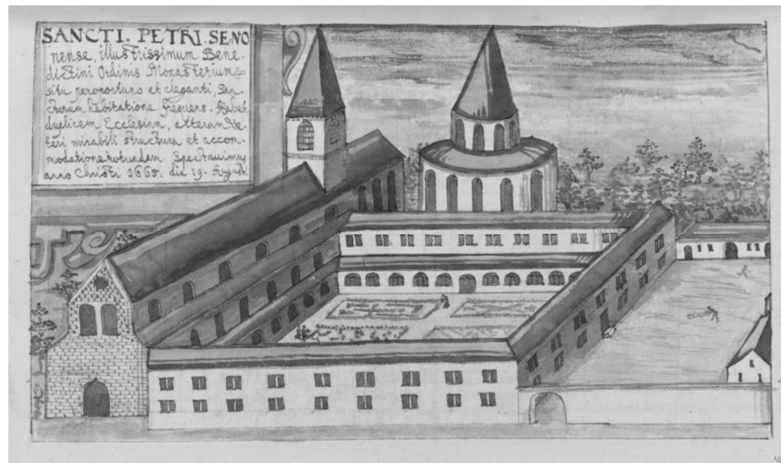 SANCTI. PETRI. SENO
nense, illustrissimum Bene-
dictini Ordinis Monasterium
situ peroportuno et eleganti, San-
ctorum habitatione frequens. Habet
duplicem Ecclesiam, alteram Ve-
teri mirabili structura et accom-
modatione rotundam Spectauimus
anno Christi 1660. die 19. Augusti